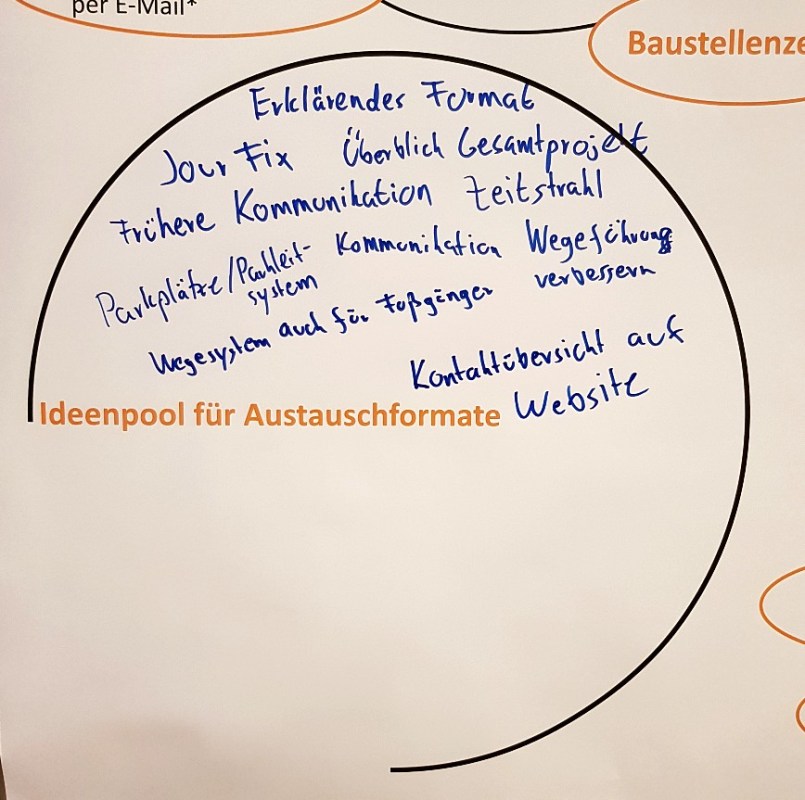 per E-Mail*
Baustellenze
Erklärendes Format
Jour Fix Überblick Gesamtprojekt
Frühere Kommunikation Zeitstrahl
Parkplätze/Parkleit-
system
Kommunikation Wegeführung
verbessern
Wegesystem auch für Fußgänger
Kontaktübersicht auf
Website
Ideenpool für Austauschformate